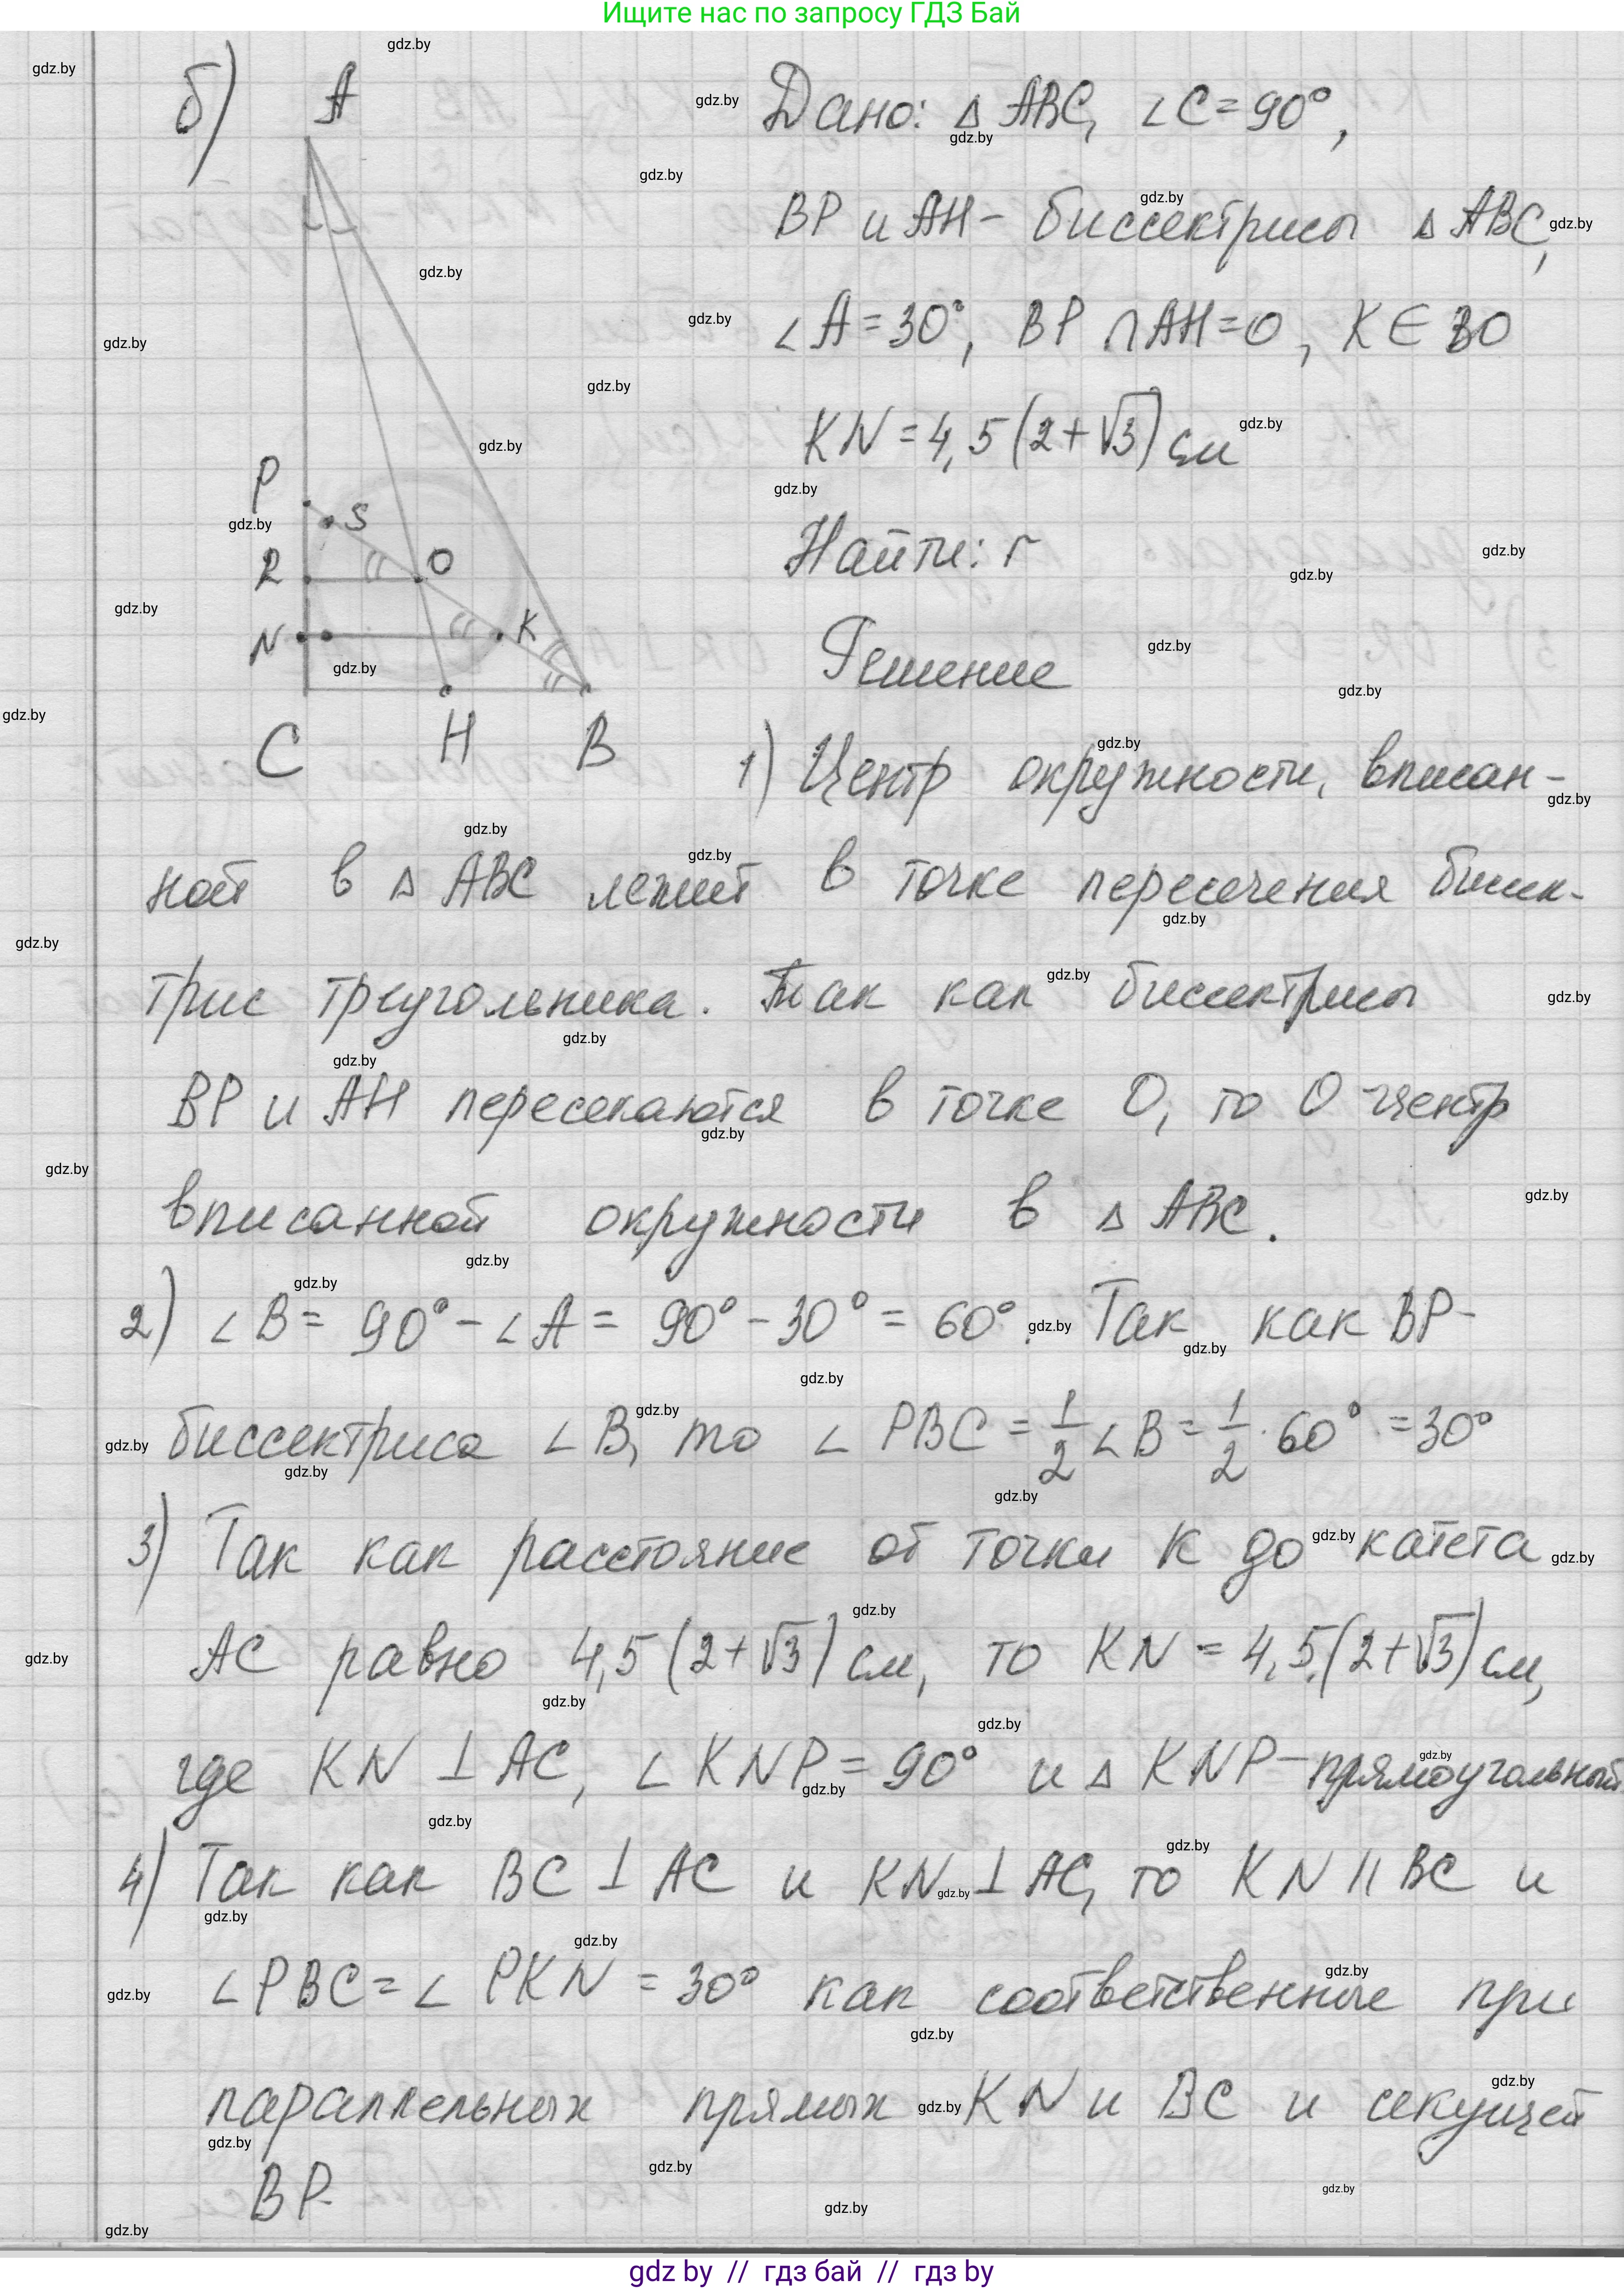 Ищите нас по запросу ГДЗ Бай
б)
A
Дано: △ ABC, ∠C=90°,
BP и AH- биссектрисы △ ABC,
∠A=30°, BP ∩ AH=O, K∈BO
KN=4,5(2+√3) см
Найти: r
Решение
P
S
R
O
N
K
C
H
B
1) Центр окружности, вписан-
ной в △ ABC лежит в точке пересечения биссек-
трис треугольника. Так как биссектрисы
BP и AH пересекаются в точке O, то O-центр
вписанной окружности в △ ABC.
2) ∠B= 90°-∠A= 90°-30°= 60°. Так как BP-
биссектриса ∠B, то ∠ PBC=1/2∠B=1/2·60°=30°
3) Так как расстояние от точки K до катета
AC равно 4,5(2+√3) см, то KN=4,5(2+√3) см,
где KN ⊥ AC, ∠KNP=90° и △ KNP-прямоугольный
4) Так как BC ⊥ AC и KN ⊥ AC, то KN || BC и
∠PBC=∠PKN=30° как соответственные при
параллельных прямых KN и BC и секущей
BP.
gdz by // гдз бай // гдз by